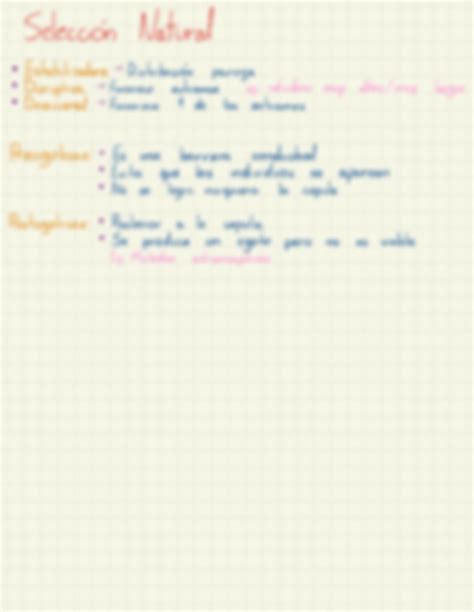 Selección Natural
• Estabilizadora → Distribución pareja
• Disruptiva → Favorece extremos ej. muy altos/muy bajos
• Direccional → Favorece 1 de los extremos
Precigótica: • Es una barrera conductual
• Evita que los individuos se apareen
• No se logra la cópula
Postcigótica: • Posterior a la cópula
• Se produce un cigoto pero no es viable